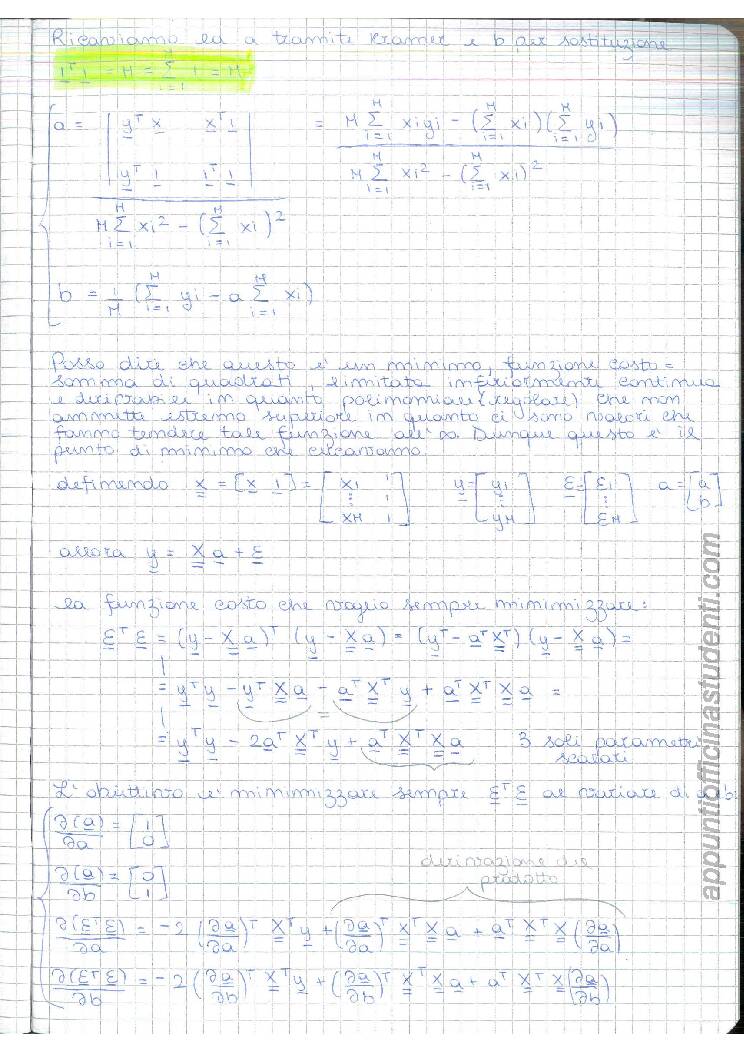 Ricaviamo la a tramite Kramer e b per sostituzione
1ᵀ1 = M = Σ_{i=1}^{M} 1 = M
a = | yᵀx xᵀ1 ; yᵀ1 1ᵀ1 | / (M Σ_{i=1}^{M} xi² − (Σ_{i=1}^{M} xi)²) = (M Σ_{i=1}^{M} xiyi − (Σ_{i=1}^{M} xi)(Σ_{i=1}^{M} yi)) / (M Σ_{i=1}^{M} xi² − (Σ_{i=1}^{M} xi)²)
b = 1/M (Σ_{i=1}^{M} yi − a Σ_{i=1}^{M} xi)
Posso dire che questo è un minimo, funzione costo =
somma di quadrati, limitata inferiormente continua
e derivabile in quanto polinomiale (regolare) che non
ammette estremo superiore in quanto ci sono valori che
fanno tendere tale funzione all'∞. Dunque questo è il
punto di minimo che cercavamo
definendo X = [x 1] = [x1 1 ; ⋮ ⋮ ; xM 1] y = [y1 ; ⋮ ; yM] ε = [ε1 ; ⋮ ; εM] a = [a ; b]
allora y = X a + ε
la funzione costo che voglio sempre minimizzare:
εᵀε = (y − X a)ᵀ (y − X a) = (yᵀ − aᵀXᵀ)(y − X a) =
= yᵀy − yᵀX a − aᵀXᵀy + aᵀXᵀX a =
=
= yᵀy − 2aᵀXᵀy + aᵀXᵀX a 3 soli parametri
scalari
L'obiettivo è minimizzare sempre εᵀε al variare di a,b:
∂(a)/∂a = [1 ; 0]
∂(a)/∂b = [0 ; 1]
derivazione del
prodotto
∂(εᵀε)/∂a = −2 (∂a/∂a)ᵀ Xᵀy + (∂a/∂a)ᵀ XᵀX a + aᵀXᵀX (∂a/∂a)
∂(εᵀε)/∂b = −2 (∂a/∂b)ᵀ Xᵀy + (∂a/∂b)ᵀ XᵀX a + aᵀXᵀX (∂a/∂b)
appuntiofficinastudenti.com